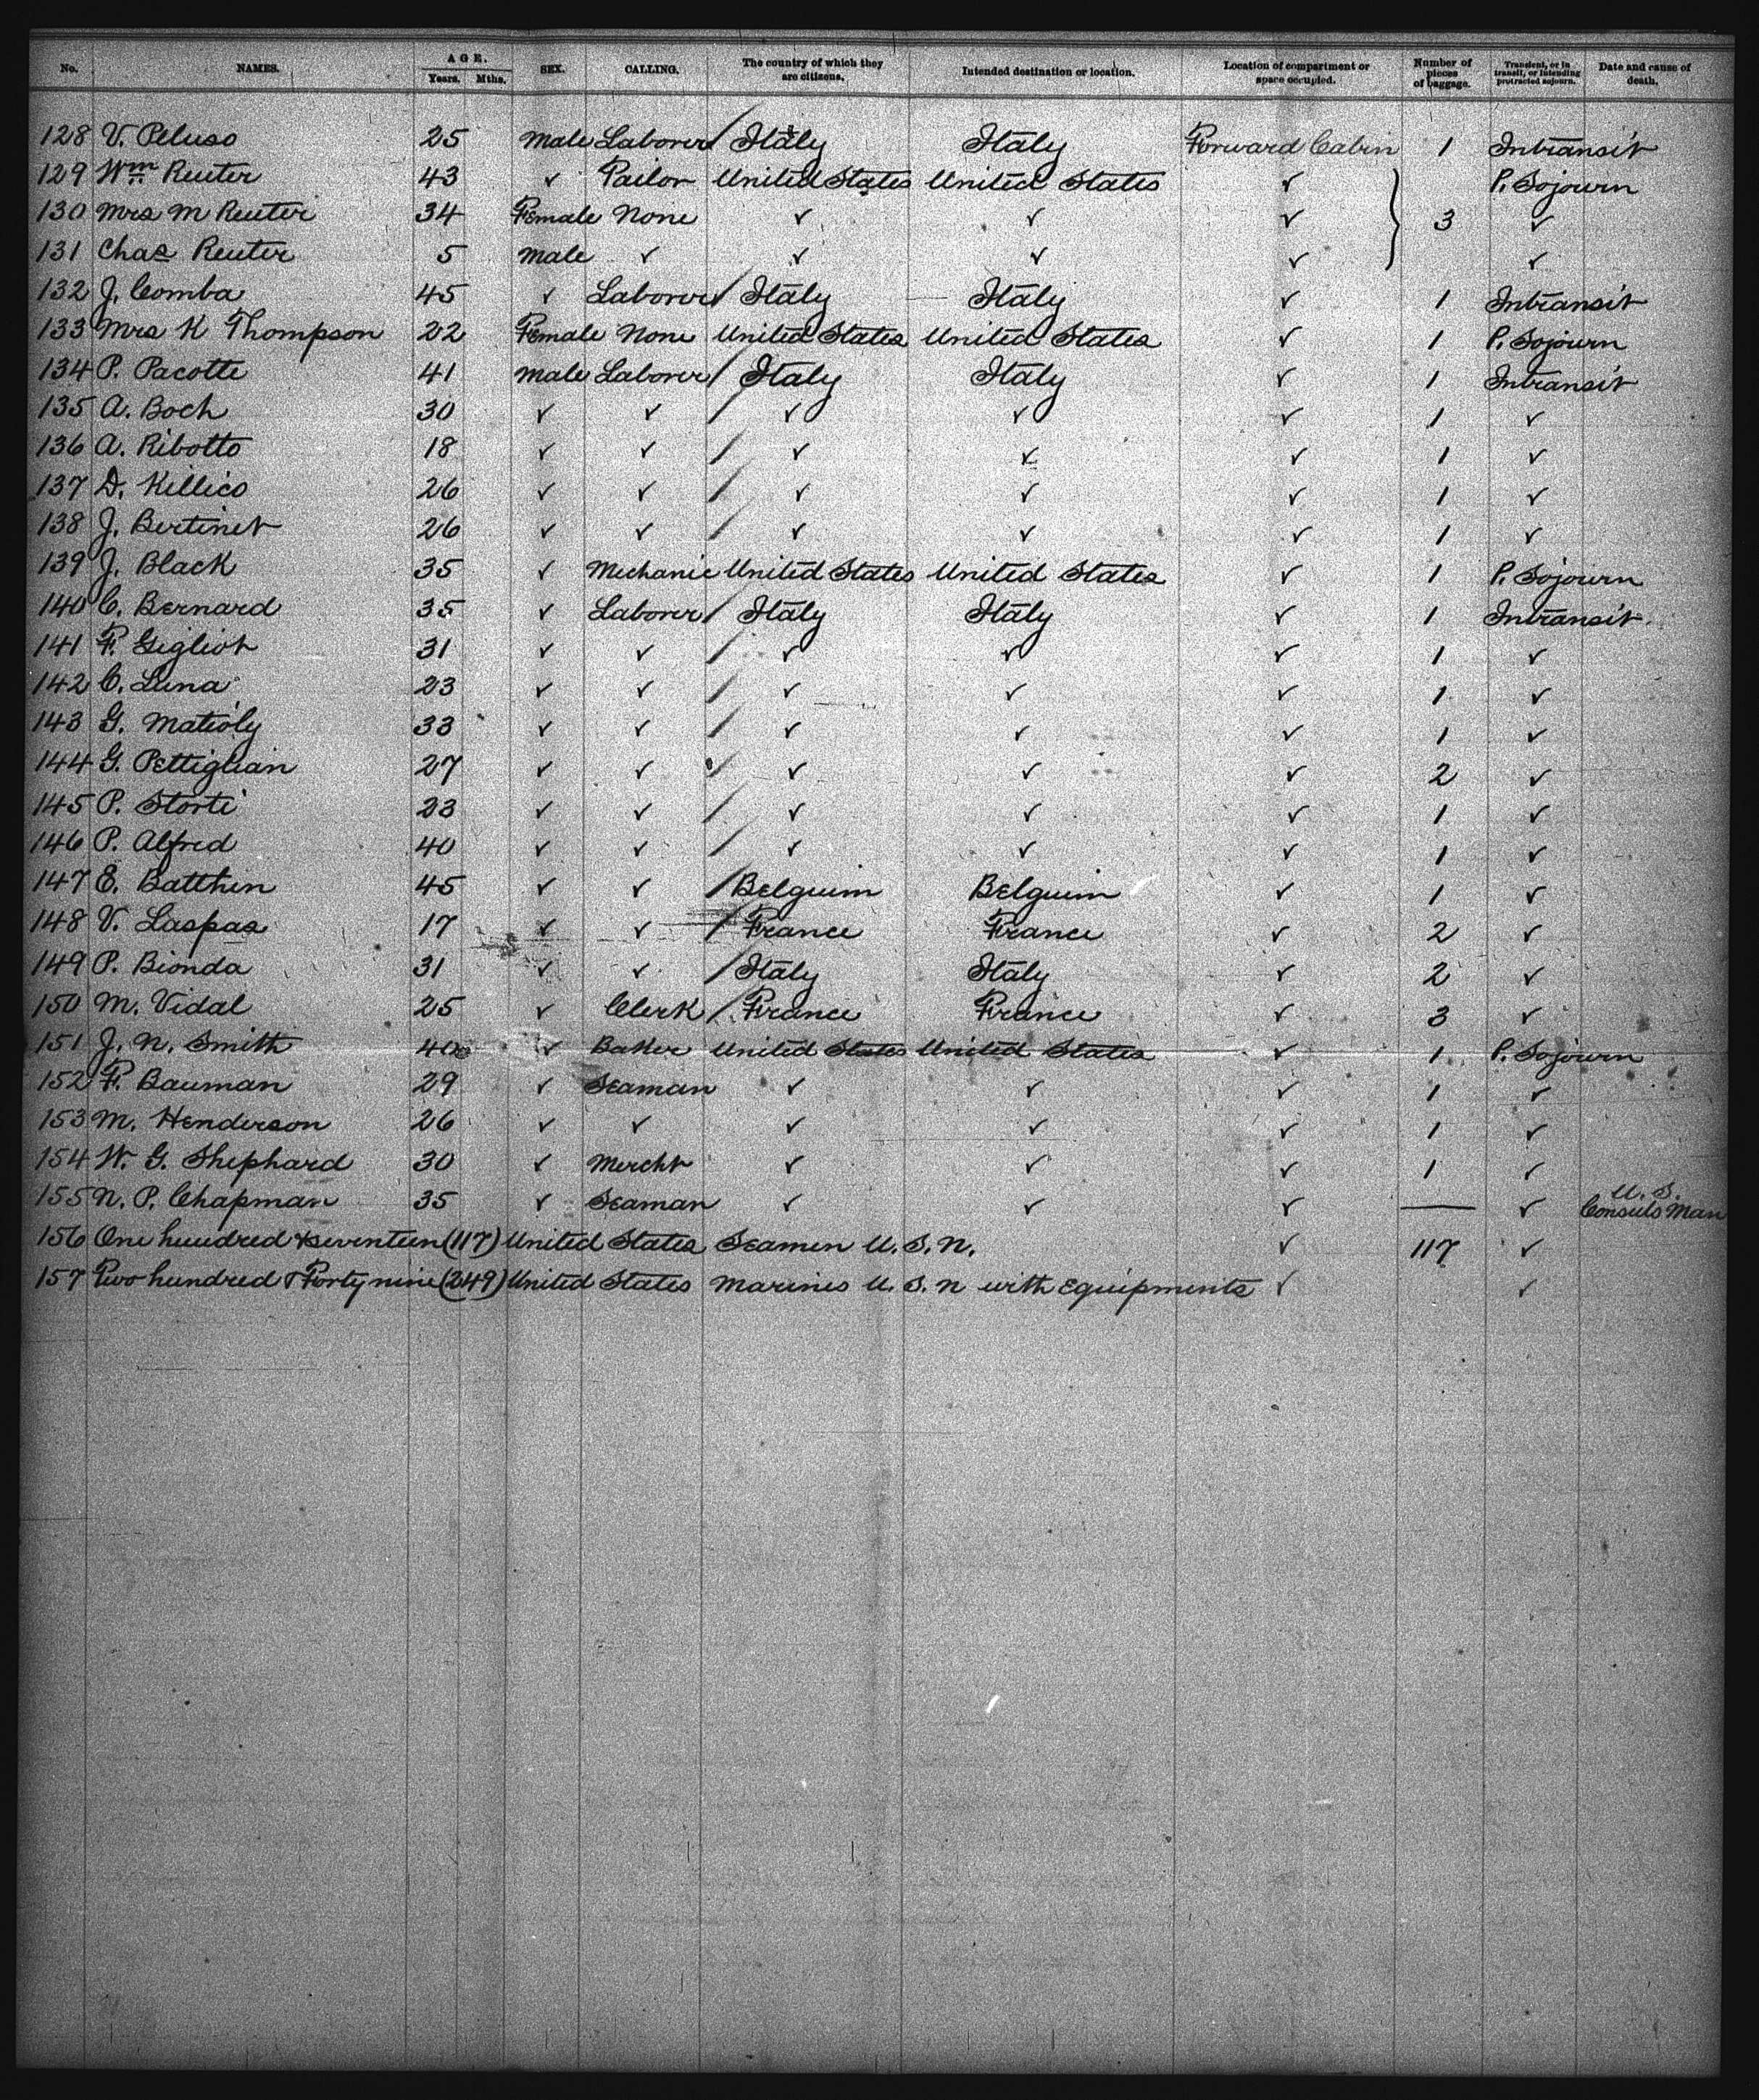 No. NAMES. AGE. Years. Mths. SEX. CALLING. The country of which they are citizens. Intended destination or location. Location of compartment or space occupied. Number of pieces of baggage. Transient, or in transit, or intending protracted sojourn. Date and cause of death.
128 V. Peluso 25 Male Laborer / Italy Italy Forward Cabin 1 Intransit
129 Wm Reuter 43 ✓ Tailor United States United States ✓ P. Sojourn
130 Mrs M Reuter 34 Female None ✓ ✓ ✓ 3 ✓
131 Chas Reuter 5 Male ✓ ✓ ✓ ✓ ✓
132 J. Comba 45 ✓ Laborer / Italy Italy ✓ 1 Intransit
133 Mrs K Thompson 22 Female None United States United States ✓ 1 P. Sojourn
134 P. Pacotte 41 Male Laborer / Italy Italy ✓ 1 Intransit
135 A. Boch 30 ✓ ✓ / ✓ ✓ ✓ 1 ✓
136 A. Ribotto 18 ✓ ✓ / ✓ ✓ ✓ 1 ✓
137 D. Killico 26 ✓ ✓ / ✓ ✓ ✓ 1 ✓
138 J. Bertinet 26 ✓ ✓ / ✓ ✓ ✓ 1 ✓
139 J. Black 35 ✓ Mechanic United States United States ✓ 1 P. Sojourn
140 C. Bernard 35 ✓ Laborer / Italy Italy ✓ 1 Intransit
141 F. Gigliot 31 ✓ ✓ / ✓ ✓ ✓ 1 ✓
142 C. Luna 23 ✓ ✓ / ✓ ✓ ✓ 1 ✓
143 G. Matioly 33 ✓ ✓ / ✓ ✓ ✓ 1 ✓
144 G. Pettiglian 27 ✓ ✓ / ✓ ✓ ✓ 2 ✓
145 P. Storti 23 ✓ ✓ / ✓ ✓ ✓ 1 ✓
146 P. Alfred 40 ✓ ✓ / ✓ ✓ ✓ 1 ✓
147 E. Batthin 45 ✓ ✓ / Belguim Belguim ✓ 1 ✓
148 V. Laspas 17 ✓ ✓ / France France ✓ 2 ✓
149 P. Bionda 31 ✓ ✓ / Italy Italy ✓ 2 ✓
150 M. Vidal 25 ✓ Clerk / France France ✓ 3 ✓
151 J. N. Smith 40 ✓ Baker United States United States ✓ 1 P. Sojourn
152 F. Bauman 29 ✓ Seaman ✓ ✓ ✓ 1 ✓
153 M. Henderson 26 ✓ ✓ ✓ ✓ ✓ 1 ✓
154 W. G. Shephard 30 ✓ Mercht ✓ ✓ ✓ 1 ✓
155 N. P. Chapman 35 ✓ Seaman ✓ ✓ ✓ — ✓ U. S. Consuls Man
156 One hundred & seventeen (117) United States Seamen U. S. N. ✓ 117 ✓
157 Two hundred & Forty nine (249) United States Marines U. S. N with Equipments ✓ ✓